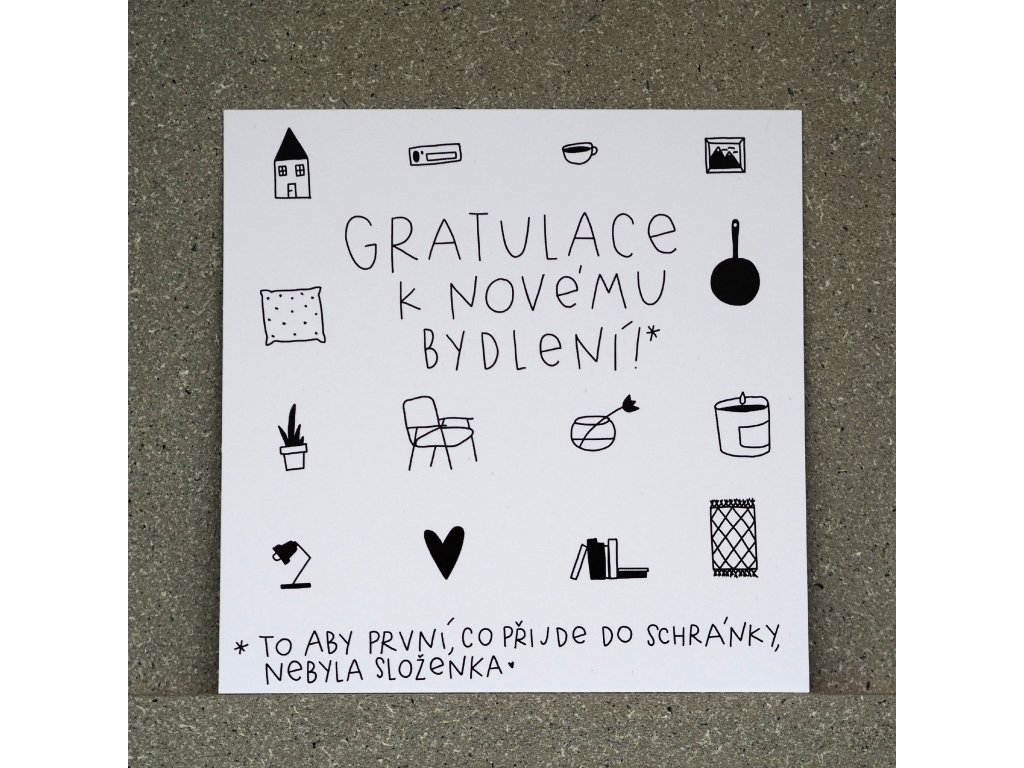 GRATULACE
K NOVÉMU
BYDLENÍ!*
* TO ABY PRVNÍ, CO PŘIJDE DO SCHRÁNKY,
NEBYLA SLOŽENKA